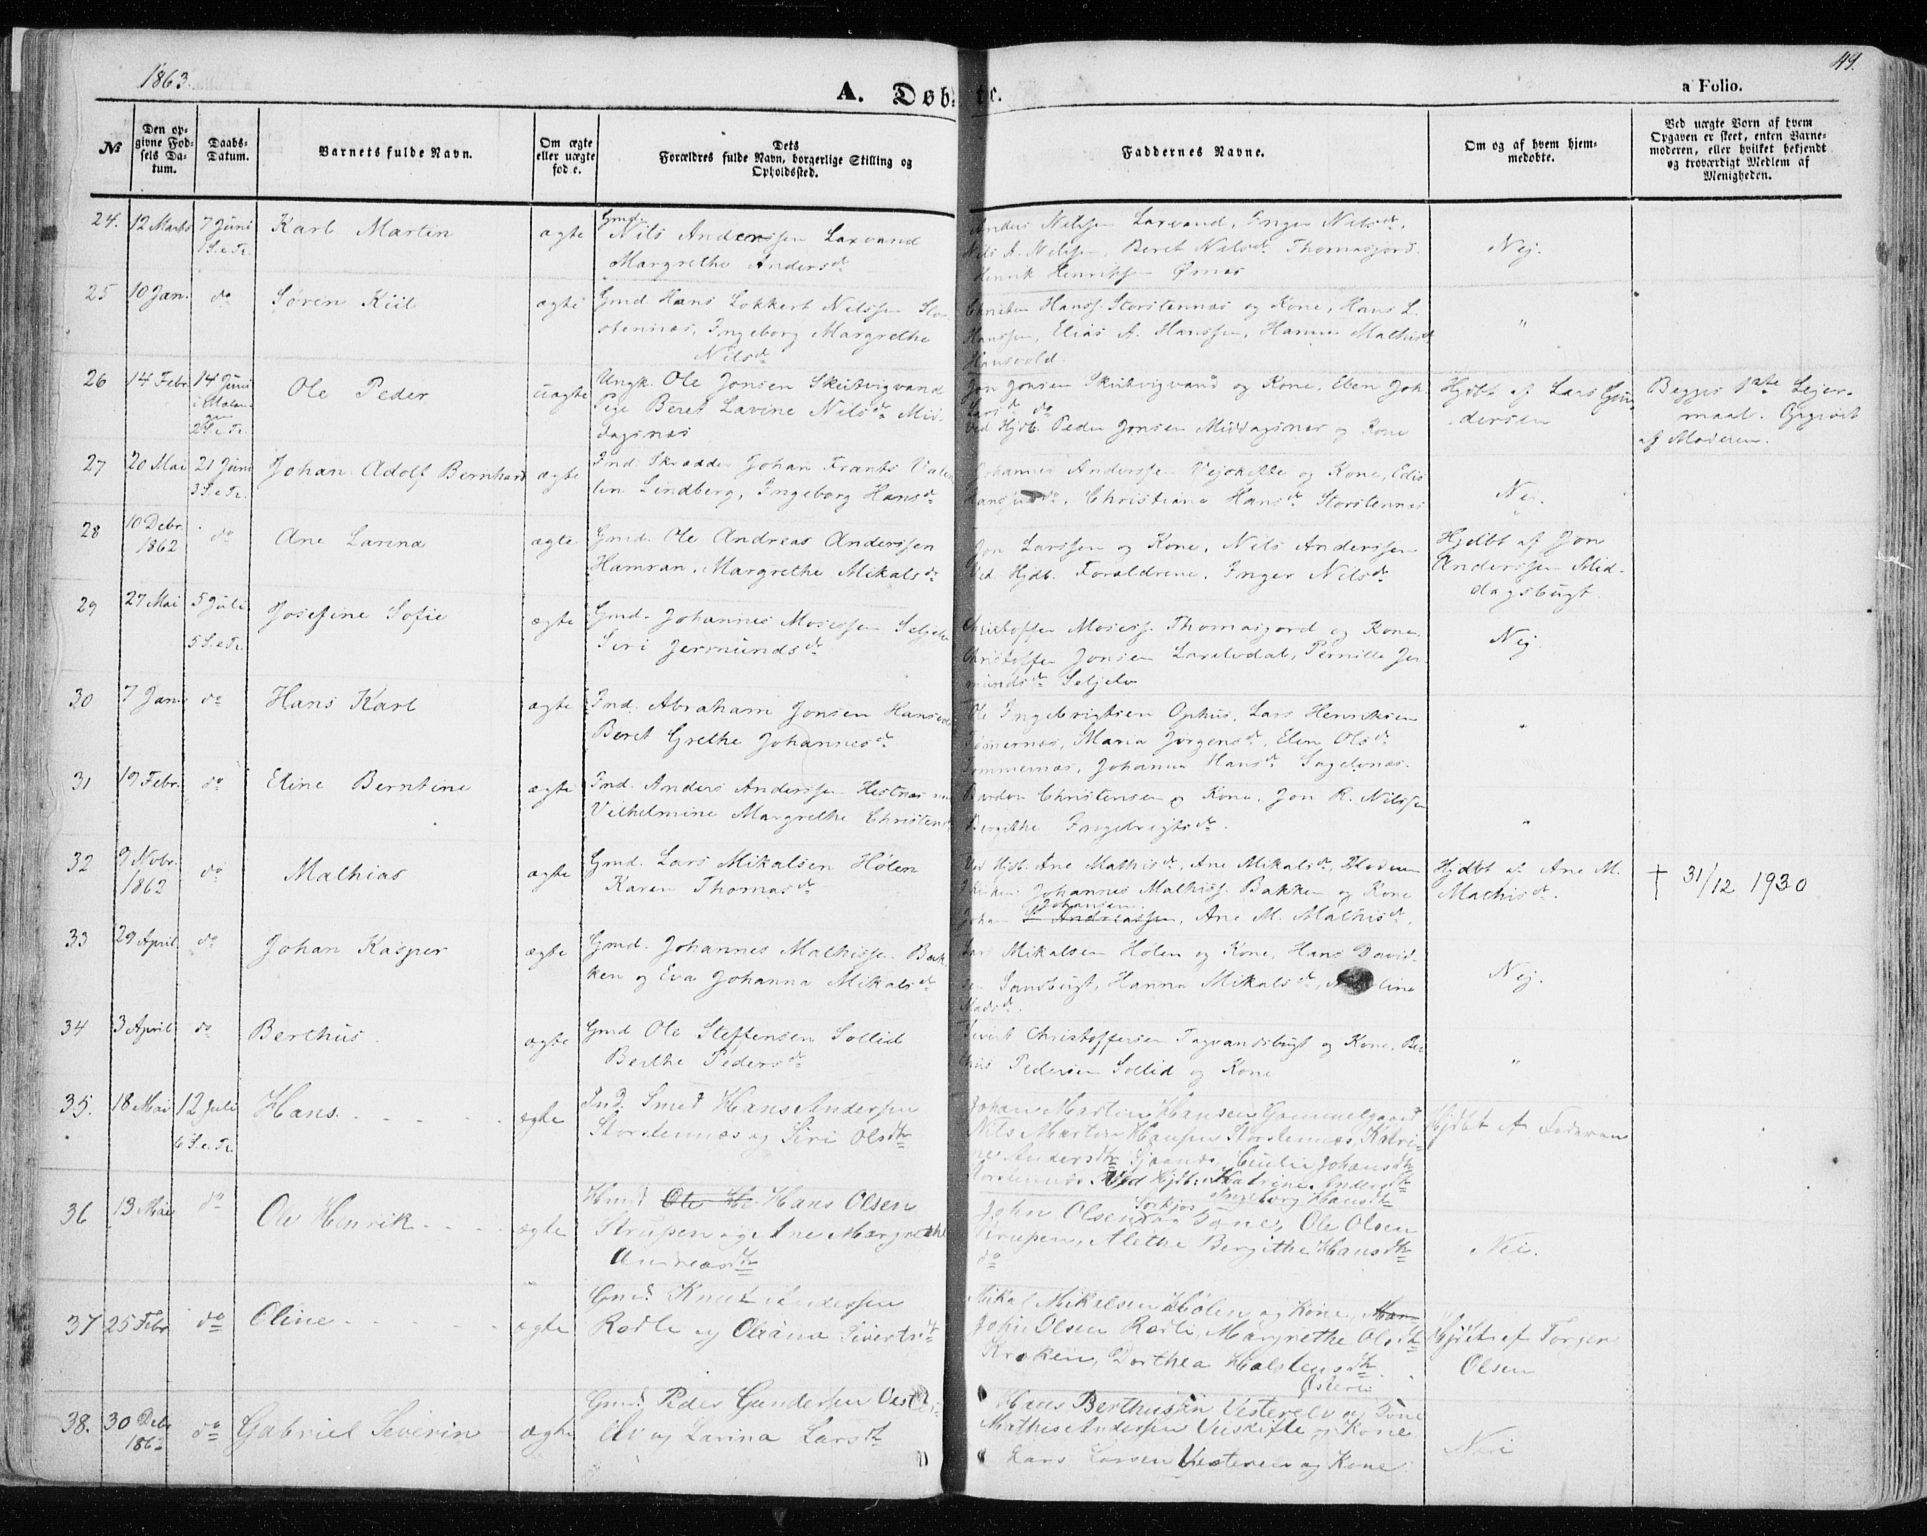 1863.
49.
A. Døbte.
a Folio.
№
Den op-
givne Fød-
sels Da-
tum.
Daabs-
Datum.
Barnets fulde Navn.
Om ægte
eller uægte
fød e.
Dets
Forældres fulde Navn, borgerlige Stilling og
Opholdssted.
Faddernes Navne.
Om og af hvem hjem-
medøbte.
Ved uægte Børn af hvem
Opgaven er skeet, enten Barne-
moderen, eller hvilket bekjendt
og troværdigt Medlem af
Menigheden.
24. 12 Marts 7 Juni Karl Martin ægte Gmd.
Nils Anderssen Laxvand
Margrethe Andersd.
Anders Nilssen Laxvand, Inger Nilsd.
Nils A. Nilssen, Beret Nilsd. Thomasjord.
Henrik Henriksen Ørnæs
Nej.
25 10 Jan. do Søren Kiil ægte Gmd Hans Lokkert Nilssen Stor-
stennæs, Ingeborg Margrethe
Nilsd.
Christen Hanss. Storstennæs og Kone, Hans L.
Hanssen, Elias A. Hanssen, Hanna Mathisd
"
26 14 Febr. 14 Juni
2 S. e Tr.
Ole Peder uægte Ungk. Ole Jonsen Skutvigvand
Pige Beret Lavine Nilsd. Mid-
dagsnæs
Jon Jonsen Skutvigvand og Kone, Elen Joh.
Larsd. do
Ved Hjdb. Peder Jonsen Middagsnæs og Kone
Hjdbt af Lars Gun-
dersen
Begges 1ste Lejer-
maal. Opgivet
af Moderen.
27 20 Mai 21 Juni
3 S. e Tr.
Johan Adolf Bernhard ægte Ind. Skrædder Johan Frants Valen-
tin Lindberg, Ingeborg Hansd.
Johannes Anderssen Vejskifte og Kone,
Christiane Hansd. Storstennæs
Nej.
28 10 Debr.
1862 do Ane Larina ægte Gmd. Ole Andreas Anderssen
Hamran, Margrethe Mikalsd.
Jon Larssen og Kone, Nils Anderssen
Ved Hjdb. Forældrene, Inger Nilsd.
Hjdbt af Jon
Anderssen Mid-
dagsbugt.
29 27 Mai 5 Juli
5 S. e Tr.
Josefine Sofie ægte Gmd. Johannes Mosessen Seljelv
Siri Jermundsd.
Christoffer Mosess. Thomasjord og Kone,
Christoffer Jonsen Laxelvdal, Pernille Jer-
mundsd. Seljelv
Nej
30 7 Jan. do Hans Karl ægte Ind. Abraham Jonsen
Beret Grethe Johannesd.
Ole Ingebrigtsen Ophus, Lars Henriksen
Tømernæs, Maria Jörgensd., Elen Olsd.
Tømmernæs, Johanna Hansd. Sagelvnæs.
"
31 19 Febr. do Eline Berntine ægte Ind. Anders Anderssen Hestnæs
Vilhelmine Margrethe Christensd.
Bardon Christensen og Kone, Jon R. Nilssen
Bergithe Ingebrigtsd.
"
32 9 Novbr.
1862 do Mathias ægte Gmd. Lars Mikalsen Hølen
Karen Thomasd.
Ved Hjdb. Ane Mathisd., Ane Mikalsd.,
Johannes Mathiss. Bakken og Kone
Johansen
Johan Andreassen, Ane M. Mathisd.
Hjdbt af Ane M.
Mathisd.
† 31/12 1930
33 29 April do Johan Kasper ægte Gmd. Johannes Mathissen Bak-
ken og Eva Johanna Mikalsd.
Lars Mikalsen Holen og Kone, Hans David-
sen Sandbugt, Hanna Mikalsd.,
Madsd.
Nej.
34 3 April do Berthus. ægte Gmd Ole Steffensen Sollid
Berthe Pedersd.
Sivert Christoffersen Tagvandsbugt og Kone, Ber-
thus Pedersen Sollid og Kone
"
35. 18 Mai 12 Juli
6 S. e. Tr.
Hans. ægte Ind. Smed Hans Andersen
Storstennæs og Siri Olsdtr
Johan Martin Hansen Gammelgaard
Nils Martin Hansen Storstennæs, Katri-
ne Andersdtr Johansdtr
Storstennæs Ved Hjdb. Katrine Andersdtr
Ingeborg Hansdtr
Hjdbt af Faderen
36 13 Mai do Ole Henrik ægte Hmd Ole H. Hans Olsen
Strupen og Ane Margrethe
Andreasdtr
Sørkjos
John Olsen og Kone, Ole Olsen
Strupen, Alethe Bergithe Hansdtr
do
Nei.
37 25 Febr do Oline ægte Gmd Knut Andersen
Rødli og Oliana Sivertsdtr
Mikal Mikelsen Hølen og Kone,
John Olsen Rødli, Margrethe Olsdtr
Kroken, Dorthea Halstensdtr
Hjdbt af Torger
Olsen
38. 30 Debr
1862 do Gabriel Severin ægte Gmd Peder Gundersen Vester-
elv og Larina Larsdtr
Østerelv
Hans Berthussen Vesterelv og Kone
Mathis Andersen Veiskifte og Kone
Lars Larsen Vesterelv og Kone
Nei